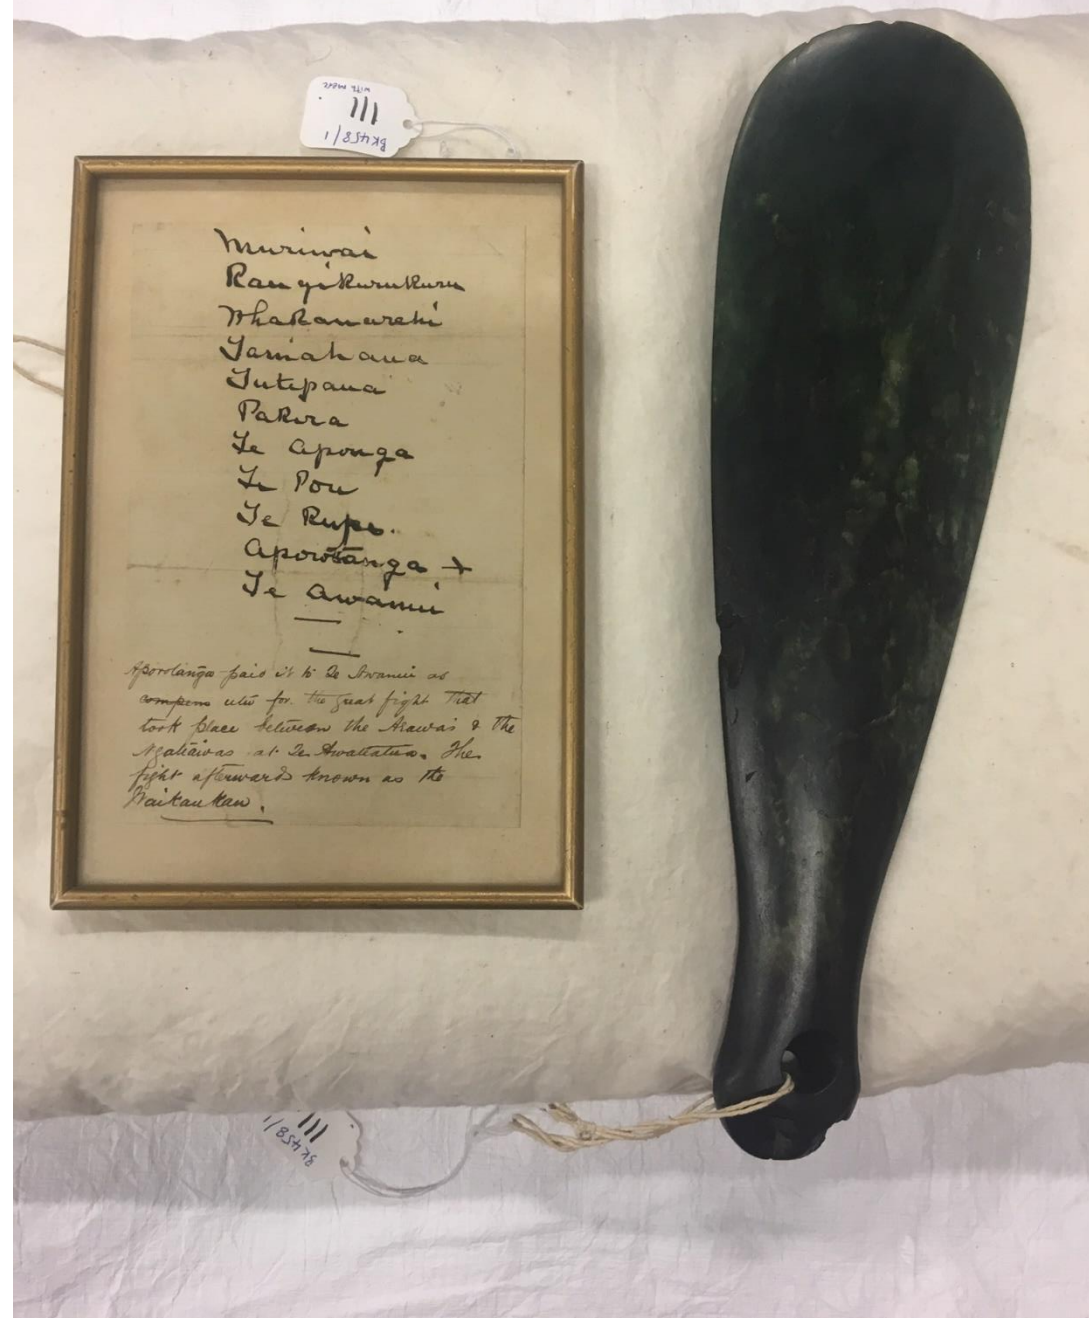 BK458/1
111
with mere
Muriwai
Rangikurukuru
Whakanarehi
Tamahaua
Tutepaua
Pakira
Te Aponga
Te Pou
Te Rupe.
Aporotanga +
Te Awanui
Aporotanga paid it to Te Awanui as
compens utu for the great fight that
took place between the Arawas & the
Ngatiawas at Te Awa. The
fight afterwards known as the
Kaikaukau.
111
BK458/1